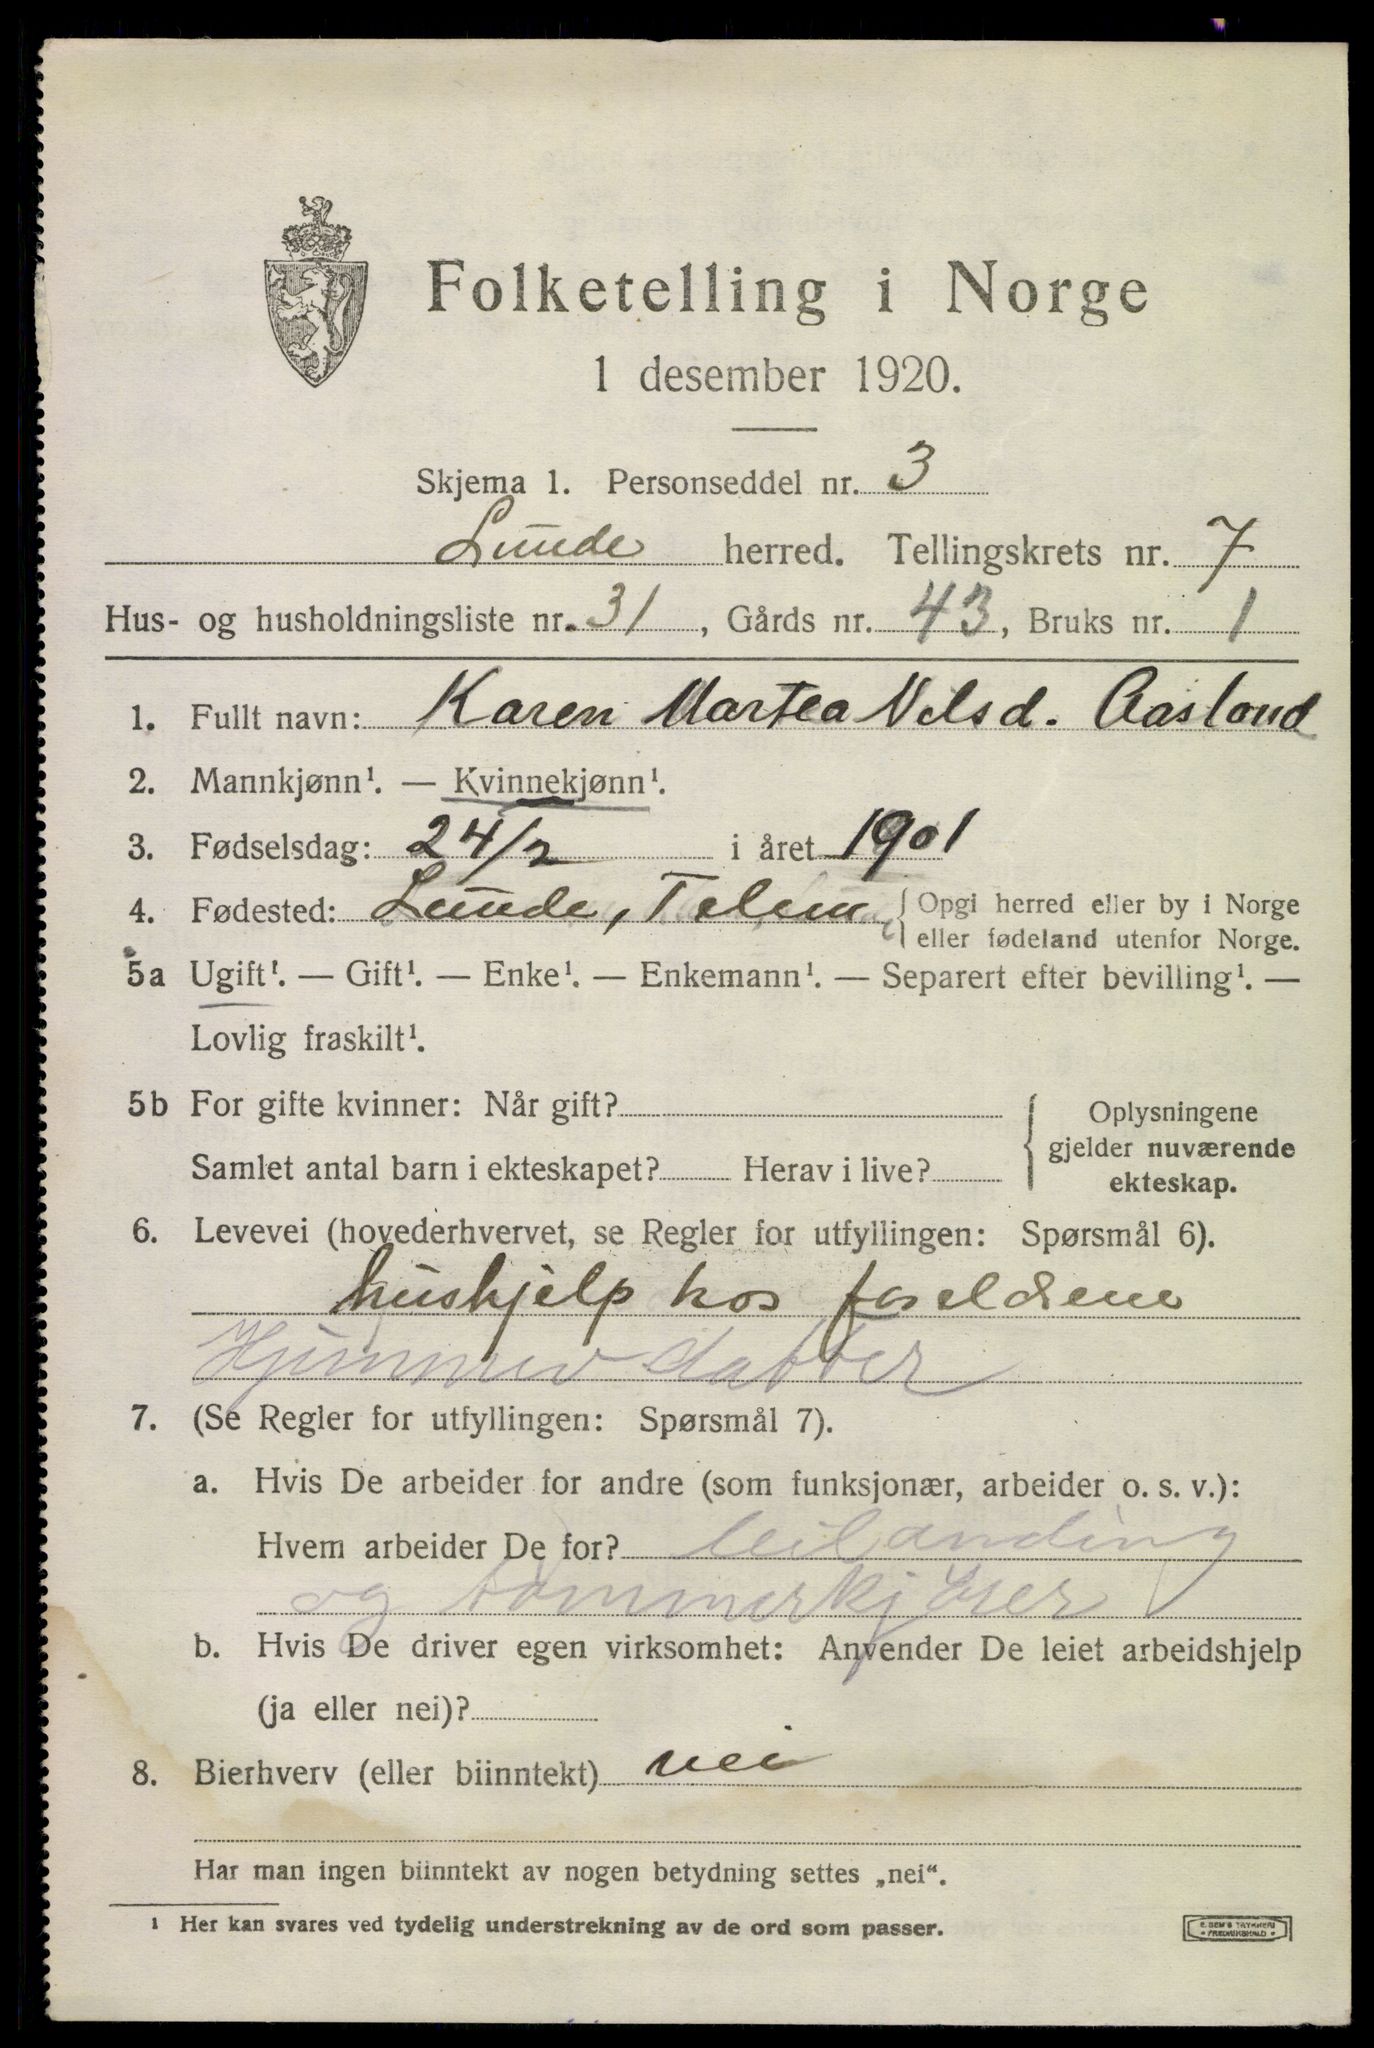 Folketelling i Norge
1 desember 1920.
Skjema 1. Personseddel nr. 3
Lunde herred. Tellingskrets nr. 7
Hus- og husholdningsliste nr. 31, Gårds nr. 43, Bruks nr. 1
1. Fullt navn: Karen Martea Nilsd. Aasland
2. Mannkjønn¹. — Kvinnekjønn¹.
3. Fødselsdag: 24/2 i året 1901
4. Fødested: Lunde, Telem { Opgi herred eller by i Norge
eller fødeland utenfor Norge.
5a Ugift¹. — Gift¹. — Enke¹. — Enkemann¹. — Separert efter bevilling¹. —
Lovlig fraskilt¹.
5b For gifte kvinner: Når gift?
Samlet antal barn i ekteskapet? Herav i live?
{ Oplysningene
gjelder nuværende
ekteskap.
6. Levevei (hovederhvervet, se Regler for utfyllingen: Spørsmål 6).
hushjelp hos foreldrene
datter
7. (Se Regler for utfyllingen: Spørsmål 7).
a. Hvis De arbeider for andre (som funksjonær, arbeider o. s. v.):
Hvem arbeider De for? leilanding
og tømmerkjører
b. Hvis De driver egen virksomhet: Anvender De leiet arbeidshjelp
(ja eller nei)?
8. Bierhverv (eller biinntekt) nei
Har man ingen biinntekt av nogen betydning settes „nei“.
1 Her kan svares ved tydelig understrekning av de ord som passer.
E. SEM'S TRYKKERI
FREDRIKSHALD